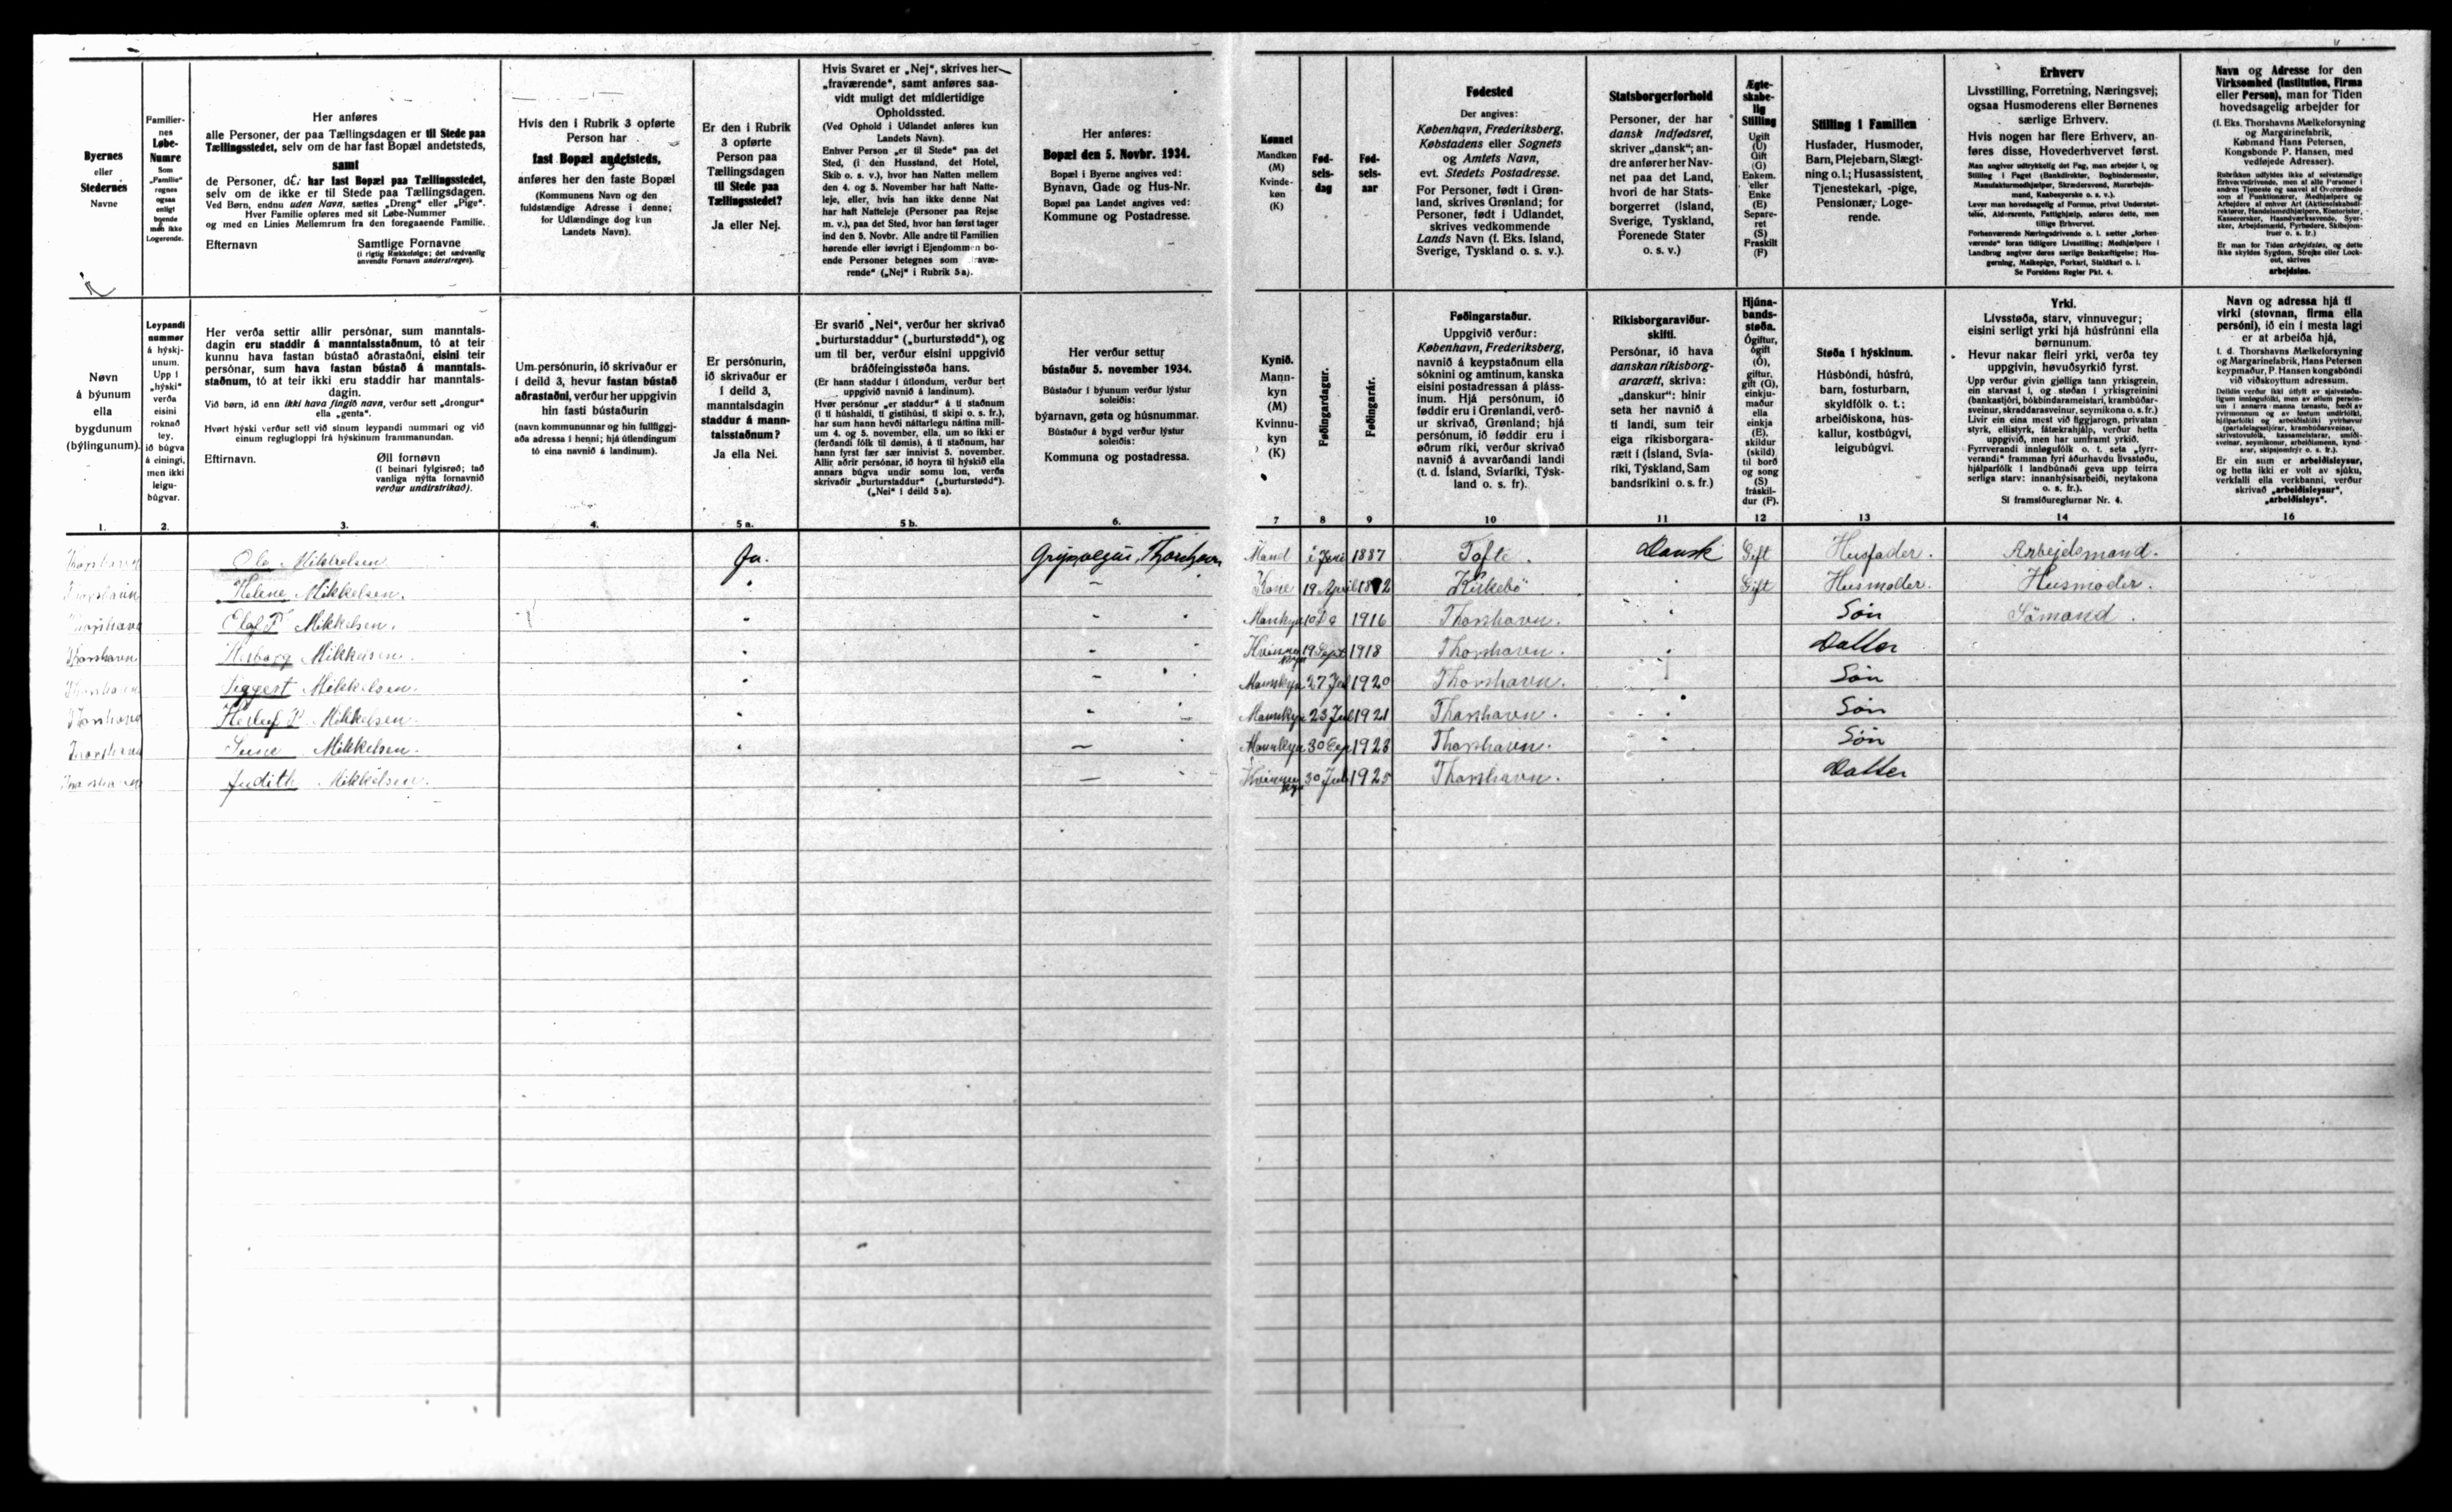 Byernes
eller
Stedernes
Navne
Familier-
nes
Løbe-
Numre
Som
„Familie“
regnes
ogsaa
enligt
boende
men ikke
Logerende.
Her anføres
alle Personer, der paa Tællingsdagen er til Stede paa
Tællingsstedet, selv om de har fast Bopæl andetsteds,
samt
de Personer, der har fast Bopæl paa Tællingsstedet,
selv om de ikke er til Stede paa Tællingsdagen.
Ved Børn, endnu uden Navn, sættes „Dreng“ eller „Pige“.
Hver Familie opføres med sit Løbe-Nummer
og med en Linies Mellemrum fra den foregaaende Familie.
Efternavn Samtlige Fornavne
(i rigtig Rækkefølge; det sædvanlig
anvendte Fornavn understreges).
Hvis den i Rubrik 3 opførte
Person har
fast Bopæl andetsteds,
anføres her den faste Bopæl
(Kommunens Navn og den
fuldstændige Adresse i denne;
for Udlændinge dog kun
Landets Navn).
Er den i Rubrik
3 opførte
Person paa
Tællingsdagen
til Stede paa
Tællingsstedet?
Ja eller Nej.
Hvis Svaret er „Nej“, skrives her
„fraværende“, samt anføres saa-
vidt muligt det midlertidige
Opholdssted.
(Ved Ophold i Udlandet anføres kun
Landets Navn).
Enhver Person „er til Stede“ paa det
Sted, (i den Husstand, det Hotel,
Skib o. s. v.), hvor han Natten mellem
den 4. og 5. November har haft Natte-
leje, eller, hvis han ikke denne Nat
har haft Natteleje (Personer paa Rejse
m. v.), paa det Sted, hvor han først tager
ind den 5. Novbr. Alle andre til Familien
hørende eller iøvrigt i Ejendommen bo-
ende Personer betegnes som „fravæ-
rende“ („Nej“ i Rubrik 5 a).
Her anføres:
Bopæl den 5. Novbr. 1934.
Bopæl i Byerne angives ved:
Bynavn, Gade og Hus-Nr.
Bopæl paa Landet angives ved:
Kommune og Postadresse.
Kønnet
Mandkøn
(M)
Kvinde-
køn
(K)
Fød-
sels-
dag
Fød-
sels-
aar
Fødested
Der angives:
København, Frederiksberg,
Købstadens eller Sognets
og Amtets Navn,
evt. Stedets Postadresse.
For Personer, født i Grøn-
land, skrives Grønland; for
Personer, født i Udlandet,
skrives vedkommende
Lands Navn (f. Eks. Island,
Sverige, Tyskland o. s. v.).
Statsborgerforhold
Personer, der har
dansk Indfødsret,
skriver „dansk“; an-
dre anfører her Nav-
net paa det Land,
hvori de har Stats-
borgerret (Island,
Sverige, Tyskland,
Forenede Stater
o. s. v.)
Ægte-
skabe-
lig
Stilling
Ugift
(U)
Gift
(G)
Enkem.
eller
Enke
(E)
Separe-
ret
(S)
Fraskilt
(F)
Stilling i Familien
Husfader, Husmoder,
Barn, Plejebarn, Slægt-
ning o. l.; Husassistent,
Tjenestekarl, -pige,
Pensionær, Loge-
rende.
Erhverv
Livsstilling, Forretning, Næringsvej;
ogsaa Husmoderens eller Børnenes
særlige Erhverv.
Hvis nogen har flere Erhverv, an-
føres disse, Hovederhvervet først.
Man angiver udtrykkelig det Fag, man arbejder i, og
Stilling i Faget (Bankdirektør, Bogbindermester,
Manufakturmedhjælper, Skrædersvend, Murarbejds-
mand, Kasbesyerske o. s. v.).
Lever man hovedsagelig af Formue, privat Understøt-
telse, Aldersrente, Fattighjælp, anføres dette, men
tillige Erhvervet.
Forhenværende Næringsdrivende o. l. sætter „forhen-
værende“ foran tidligere Livsstilling; Medhjælpere i
Landbrug angiver deres særlige Beskæftigelse; Hus-
gerning, Malkepige, Forkarl, Staldkarl o. l.
Se Forsidens Regler Pkt. 4.
Navn og Adresse for den
Virksomhed (Institution, Firma
eller Person), man for Tiden
hovedsagelig arbejder for
(f. Eks. Thorshavns Mælkeforsyning
og Margarinefabrik,
Købmand Hans Petersen,
Kongsbonde P. Hansen, med
vedføjede Adresser).
Er man for Tiden arbejdsløs, og dette
ikke skyldes Sygdom, Strejke eller Lock-
out, skrives
arbejdsløs.
Nøvn
á býunum
ella
bygdunum
(býlingunum).
Leypandi
nummar
á hýskj-
unum.
Upp í
„hýski“
verða
eisini
roknað
tey,
ið búgva
á einingi,
men ikki
leigu-
búgvar.
Her verða settir allir persónar, sum manntals-
dagin eru staddir á manntalsstaðnum, tó at teir
kunnu hava fastan bústað aðrastaðni, eisini teir
persónar, sum hava fastan bústað á manntals-
staðnum, tó at teir ikki eru staddir har manntals-
dagin.
Við børn, ið enn ikki hava fingið navn, verður sett „drongur“
ella „genta“.
Hvørt hýski verður sett við sínum leypandi nummari og við
einum reglugloppi frá hýskinum frammanundan.
Eftirnavn. Øll fornøvn
(í beinari fylgisrøð; tað
vanliga nýtta fornavnið
verður undirstrikað).
Um persónurin, ið skrivaður er
í deild 3, hevur fastan bústað
aðrastaðni, verður her uppgivin
hin fasti bústaðurin
(navn kommununnar og hin fullfíggj-
aða adressa í henni; hjá útlendingum
tó eina navnið á landinum).
Er persónurin,
ið skrivaður er
í deild 3,
manntalsdagin
staddur á mann-
talsstaðnum?
Ja ella Nei.
Er svarið „Nei“, verður her skrivað
„burturstaddur“ („burturstødd“), og
um til ber, verður eisini uppgivið
bráðfeingisstøða hans.
(Er hann staddur í útlondum, verður bert
uppgivið navnið á landinum).
Hvør persónur „er staddur“ á tí staðnum
(í tí húshaldi, tí gistihúsi, tí skipi o. s. fr.),
har sum hann hevði náttarlegu náttina mill-
um 4. og 5. november, ella, um so ikki er
(ferðandi fólk til dømis), á tí staðnum, har
hann fyrst fær sær innivist 5. november.
Allir aðrir persónar, ið hoyra til hýskið ella
annars búgva undir somu lon, verða
skrivaðir „burturstaddur“ („burturstødd“).
(„Nei“ í deild 5 a)
Her verður settur
bústaður 5. november 1934.
Bústaður í býunum verður lýstur
soleiðis:
býarnavn, gøta og húsnummar.
Bústaður á bygd verður lýstur
soleiðis:
Kommuna og postadressa.
Kynið.
Mann-
kyn
(M)
Kvinnu-
kyn
(K)
Føðingardagur.
Føðingarár.
Føðingarstaður.
Uppgivið verður:
København, Frederiksberg,
navnið á keypstaðnum ella
sóknini og amtinum, kanska
eisini postadressan á pláss-
inum. Hjá persónum, ið
føddir eru í Grønlandi, verð-
ur skrivað, Grønland; hjá
persónum, ið føddir eru í
øðrum ríki, verður skrivað
navnið á avvarðandi landi
(t. d. Ísland, Svíaríki, Týsk-
land o. s. fr).
Ríkisborgaraviður-
skifti.
Persónar, ið hava
danskan ríkisborg-
ararætt, skriva:
„danskur“: hinir
seta her navnið á
tí landi, sum teir
eiga ríkisborgara-
rætt í (Ísland, Svía-
ríki, Týskland, Sam
bandsríkini o. s. fr.)
Hjúna-
bands-
støða.
Ógiftur,
ógift
(Ó),
giftur,
gift (G),
einkju-
maður
ella
einkja
(E),
skildur
(skild)
til borð
og song
(S)
fráskil-
dur (F).
Støða í hýskinum.
Húsbóndi, húsfrú,
barn, fosturbarn,
skyldfólk o. t.;
arbeiðiskona, hús-
kallur, kostbúgvi,
leigubúgvi.
Yrki.
Livsstøða, starv, vinnuvegur;
eisini serligt yrki hjá húsfrúnni ella
børnunum.
Hevur nakar fleiri yrki, verða tey
uppgivin, høvuðsyrkið fyrst.
Sí framsíðureglurnar Nr. 4.
Navn og adressa hjá tí
virki (stovnan, firma ella
persóni), ið ein í mesta lagi
er at arbeiða hjá,
t. d. Thorshavns Mælkeforsyning
og Margarinefabrik, Hans Petersen
keypmaður, P. Hansen kongsbóndi
við viðskoyttum adressum.
Er ein sum er arbeiðisleysur,
og hetta ikki er volt av sjúku,
verkfalli ella verkbanni, verður
skrivað „arbeiðisleysur“,
„arbeiðisleys“.
1. 2. 3. 4. 5 a. 5 b. 6. 7 8 9 10 11 12 13 14 16
Thorshavn Ole Mikkelsen Ja. Thorshavn Mand 1887 Tofte. Dansk Gift Husfader. Arbejdsmand.
Thorshavn Helene Mikkelsen. " — Kone 19 April Kirkebö " Gift Husmoder. Husmoder.
Thorshavn Olaf P Mikkelsen. " — Mankyn 1916 Thorshavn. " Søn Sömand.
Thorshavn Mikkelsen. " — 19 Sept 1918 Thorshavn. " Datter
Thorshavn Mikkelsen. " — 27 1920 Thorshavn. " Søn
Thorshavn Mikkelsen. " — 23 Jul 1921 Thorshavn. " Søn
Thorshavn Mikkelsen. " — 30 1923 Thorshavn. " Søn
Thorshavn Judith Mikkelsen. — 30 1925 Thorshavn. " Datter